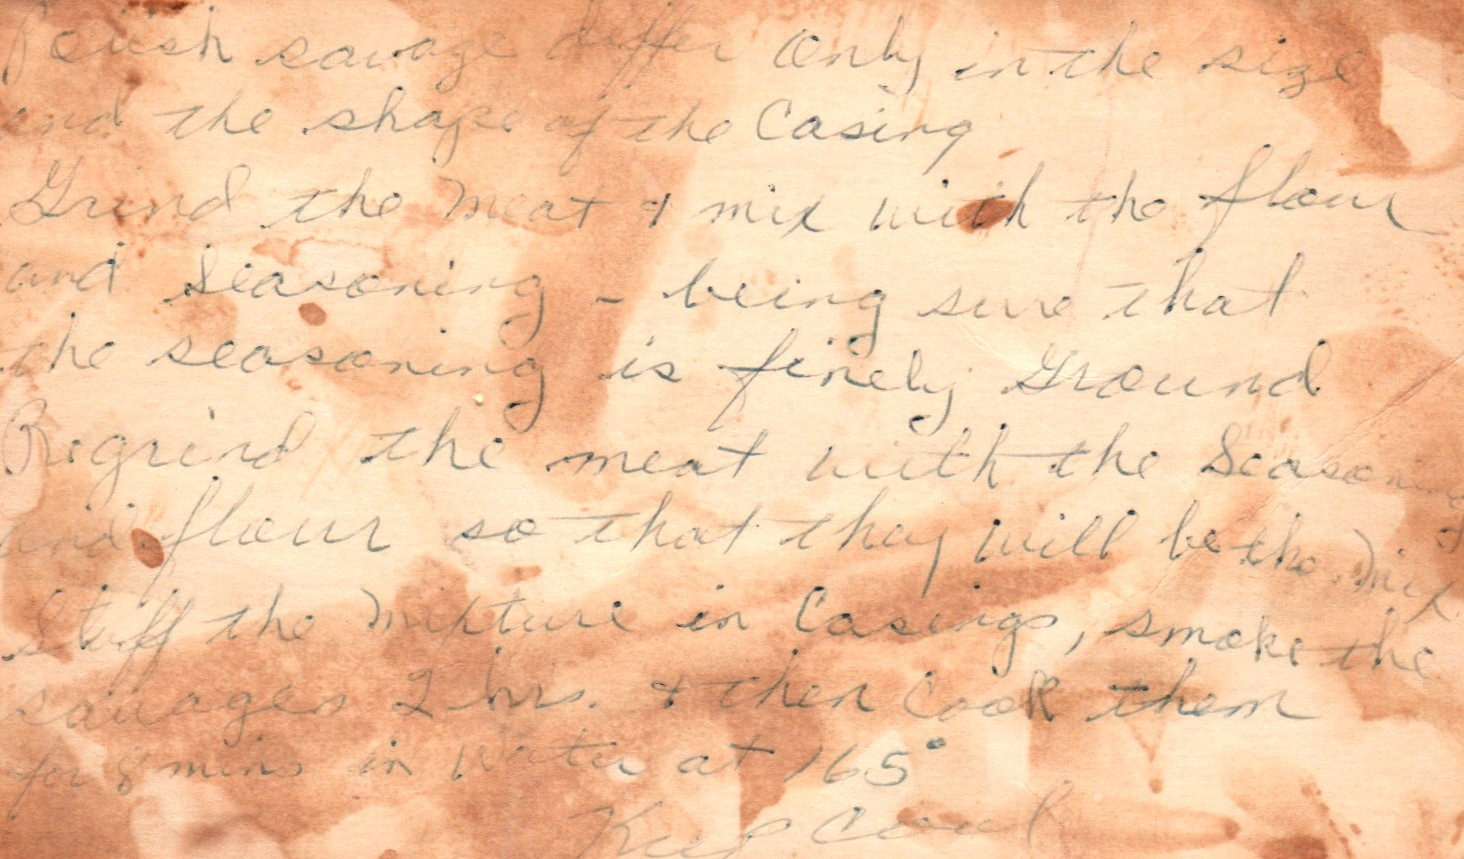 Polish sausage differ only in the size
and the shape of the Casing
Grind the meat & mix with the flour
and Seasoning - being sure that
the seasoning is finely Ground
Regrind the meat with the Seasoning
and flour so that they will be tho. mix
Stuff the mixture in Casings, smoke the
sausages 2 hrs. & then Cook them
for 8 mins in water at 165°
Keep Cool